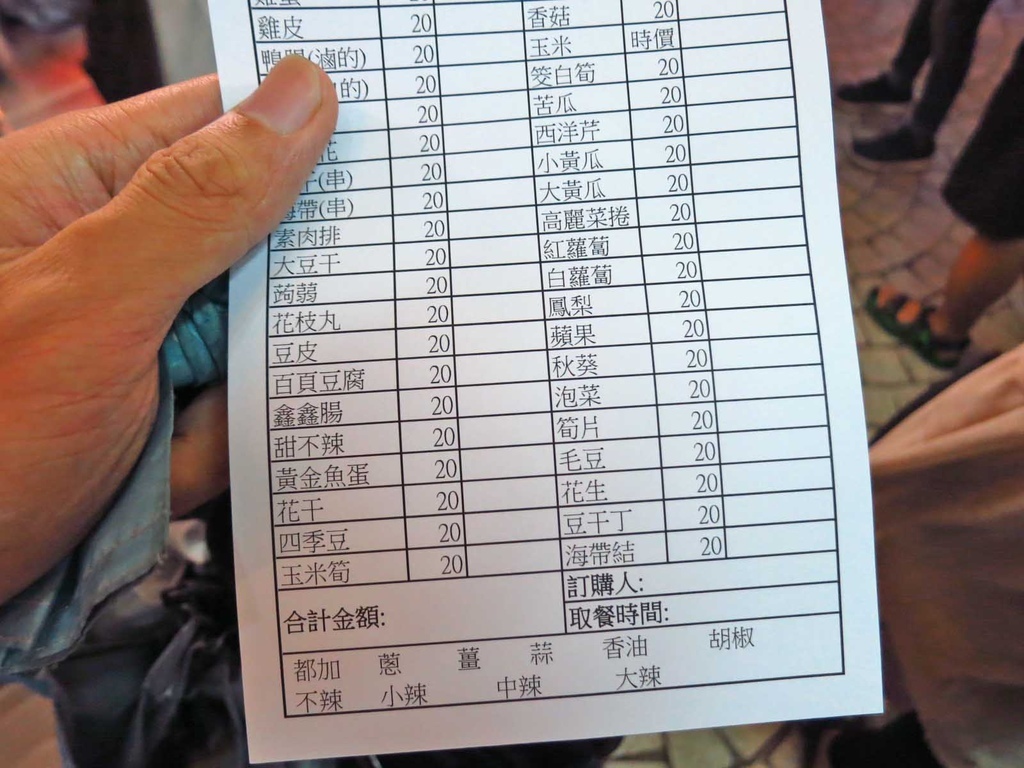 雞皮 20 香菇 20
鴨腸(滷的) 20 玉米 時價
的) 20 筊白筍 20
20 苦瓜 20
花 20 西洋芹 20
(串) 20 小黃瓜 20
海帶(串) 20 大黃瓜 20
素肉排 20 高麗菜捲 20
大豆干 20 紅蘿蔔 20
蒟蒻 20 白蘿蔔 20
花枝丸 20 鳳梨 20
豆皮 20 蘋果 20
百頁豆腐 20 秋葵 20
鑫鑫腸 20 泡菜 20
甜不辣 20 筍片 20
黃金魚蛋 20 毛豆 20
花干 20 花生 20
四季豆 20 豆干丁 20
玉米筍 20 海帶結 20
合計金額:
訂購人:
取餐時間:
都加 蔥 薑 蒜 香油 胡椒
不辣 小辣 中辣 大辣